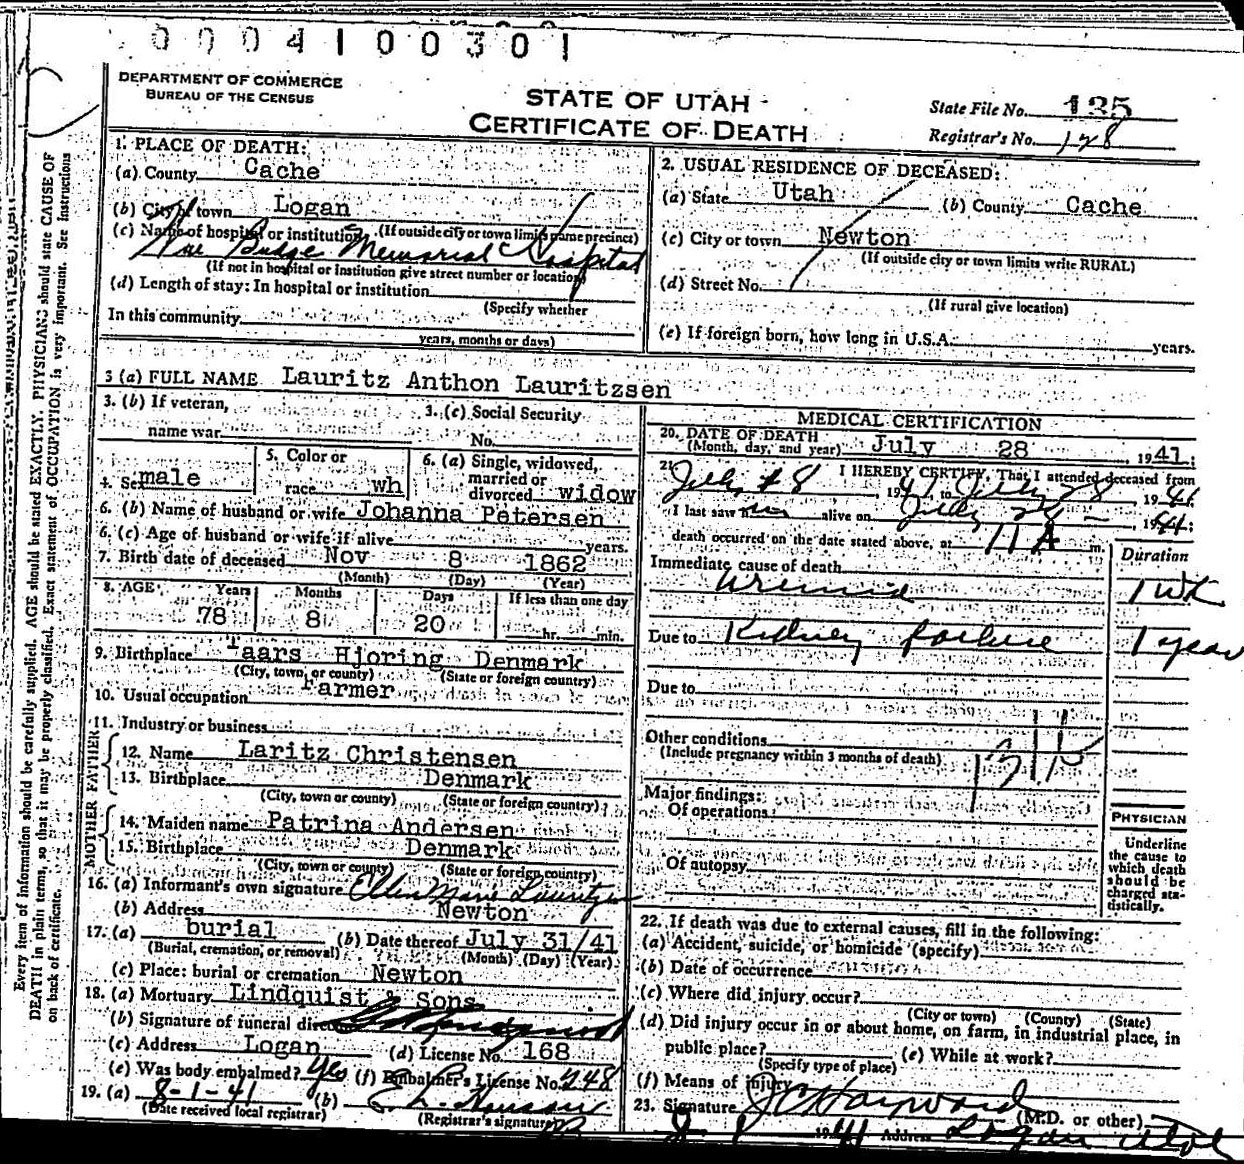 0004100301
DEPARTMENT OF COMMERCE
BUREAU OF THE CENSUS
STATE OF UTAH
CERTIFICATE OF DEATH
State File No. 135
Registrar's No. 128
1. PLACE OF DEATH:
(a) County Cache
(b) City or town Logan
(If outside city or town limits name precinct)
(c) Name of hospital or institution
Wm Budge Memorial Hospital
(If not in hospital or institution give street number or location)
(d) Length of stay: In hospital or institution
(Specify whether
In this community
years, months or days)
2. USUAL RESIDENCE OF DECEASED:
(a) State Utah (b) County Cache
(c) City or town Newton
(If outside city or town limits write RURAL)
(d) Street No.
(If rural give location)
(e) If foreign born, how long in U.S.A. years.
3 (a) FULL NAME Lauritz Anthon Lauritzsen
3. (b) If veteran,
name war
3. (c) Social Security
No.
4. Sex male
5. Color or
race wh
6. (a) Single, widowed,
married or
divorced widow
6. (b) Name of husband or wife Johanna Petersen
6. (c) Age of husband or wife if alive years.
7. Birth date of deceased Nov 8 1862
(Month) (Day) (Year)
8. AGE Years Months Days If less than one day
78 8 20 hr. min.
9. Birthplace Taars Hjoring Denmark
(City, town, or county) (State or foreign country)
10. Usual occupation Farmer
11. Industry or business
FATHER
12. Name Laritz Christensen
13. Birthplace Denmark
(City, town or county) (State or foreign country)
MOTHER
14. Maiden name Patrina Andersen
15. Birthplace Denmark
(City, town or county) (State or foreign country)
16. (a) Informant's own signature Ellen Marie Lauritzen
(b) Address Newton
17. (a) burial (b) Date thereof July 31/41
(Burial, cremation, or removal) (Month) (Day) (Year)
(c) Place: burial or cremation Newton
18. (a) Mortuary Lindquist & Sons
(b) Signature of funeral director
(c) Address Logan (d) License No. 168
(e) Was body embalmed? Yes (f) Embalmer's License No. 248
19. (a) 8-1-41 (b)
(Date received local registrar) (Registrar's signature)
MEDICAL CERTIFICATION
20. DATE OF DEATH
(Month, day, and year) July 28 1941;
21. I HEREBY CERTIFY, That I attended deceased from
July 8, 1941, to July 28 1941
I last saw him alive on July 28 1941;
death occurred on the date stated above, at 11 A m.
Duration
Immediate cause of death
Uremia 1 wk
Due to Kidney failure 1 year
Due to
Other conditions
(Include pregnancy within 3 months of death)
Major findings:
Of operations
Of autopsy
PHYSICIAN
Underline
the cause to
which death
should be
charged sta-
tistically.
22. If death was due to external causes, fill in the following:
(a) Accident, suicide, or homicide (specify)
(b) Date of occurrence
(c) Where did injury occur?
(City or town) (County) (State)
(d) Did injury occur in or about home, on farm, in industrial place, in
public place? (e) While at work?
(Specify type of place)
(f) Means of injury
23. Signature J C Hayward (M.D. or other)
8-1 1941 Address Logan Utah
Every item of information should be carefully supplied. AGE should be stated EXACTLY. PHYSICIANS should state CAUSE OF
DEATH in plain terms, so that it may be properly classified. Exact statement of OCCUPATION is very important. See instructions
on back of certificate.